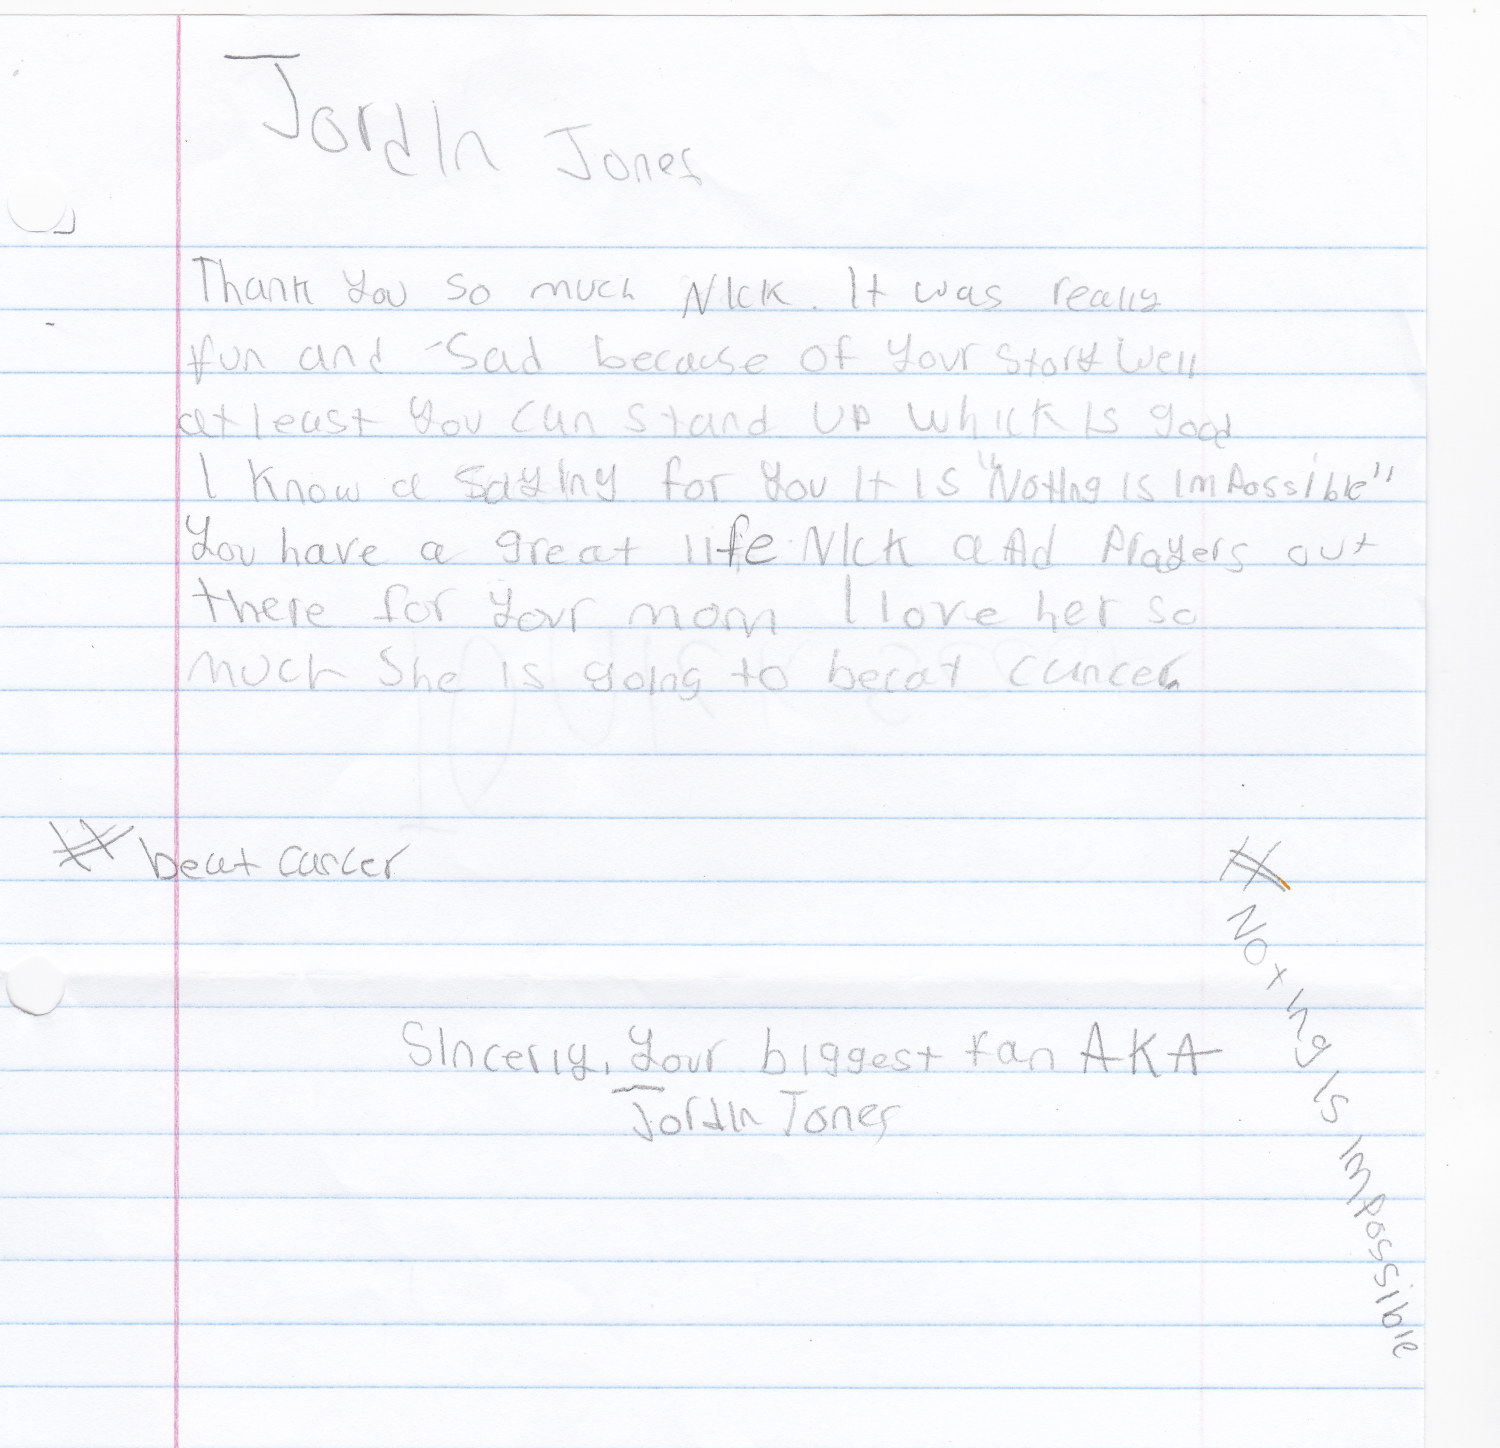 Jordin Jones
Thank you so much Nick. It was really
fun and Sad because of your story well
at least you can stand up whick is good
I know a saying for you it is "Noting is impossible"
You have a great life Nick aAd Prayers out
there for your mom I love her so
much She is going to becat cancer.
# beat cancer
Sincerly, your biggest fan AKA
Jordin Jones
# Nothng is impossible